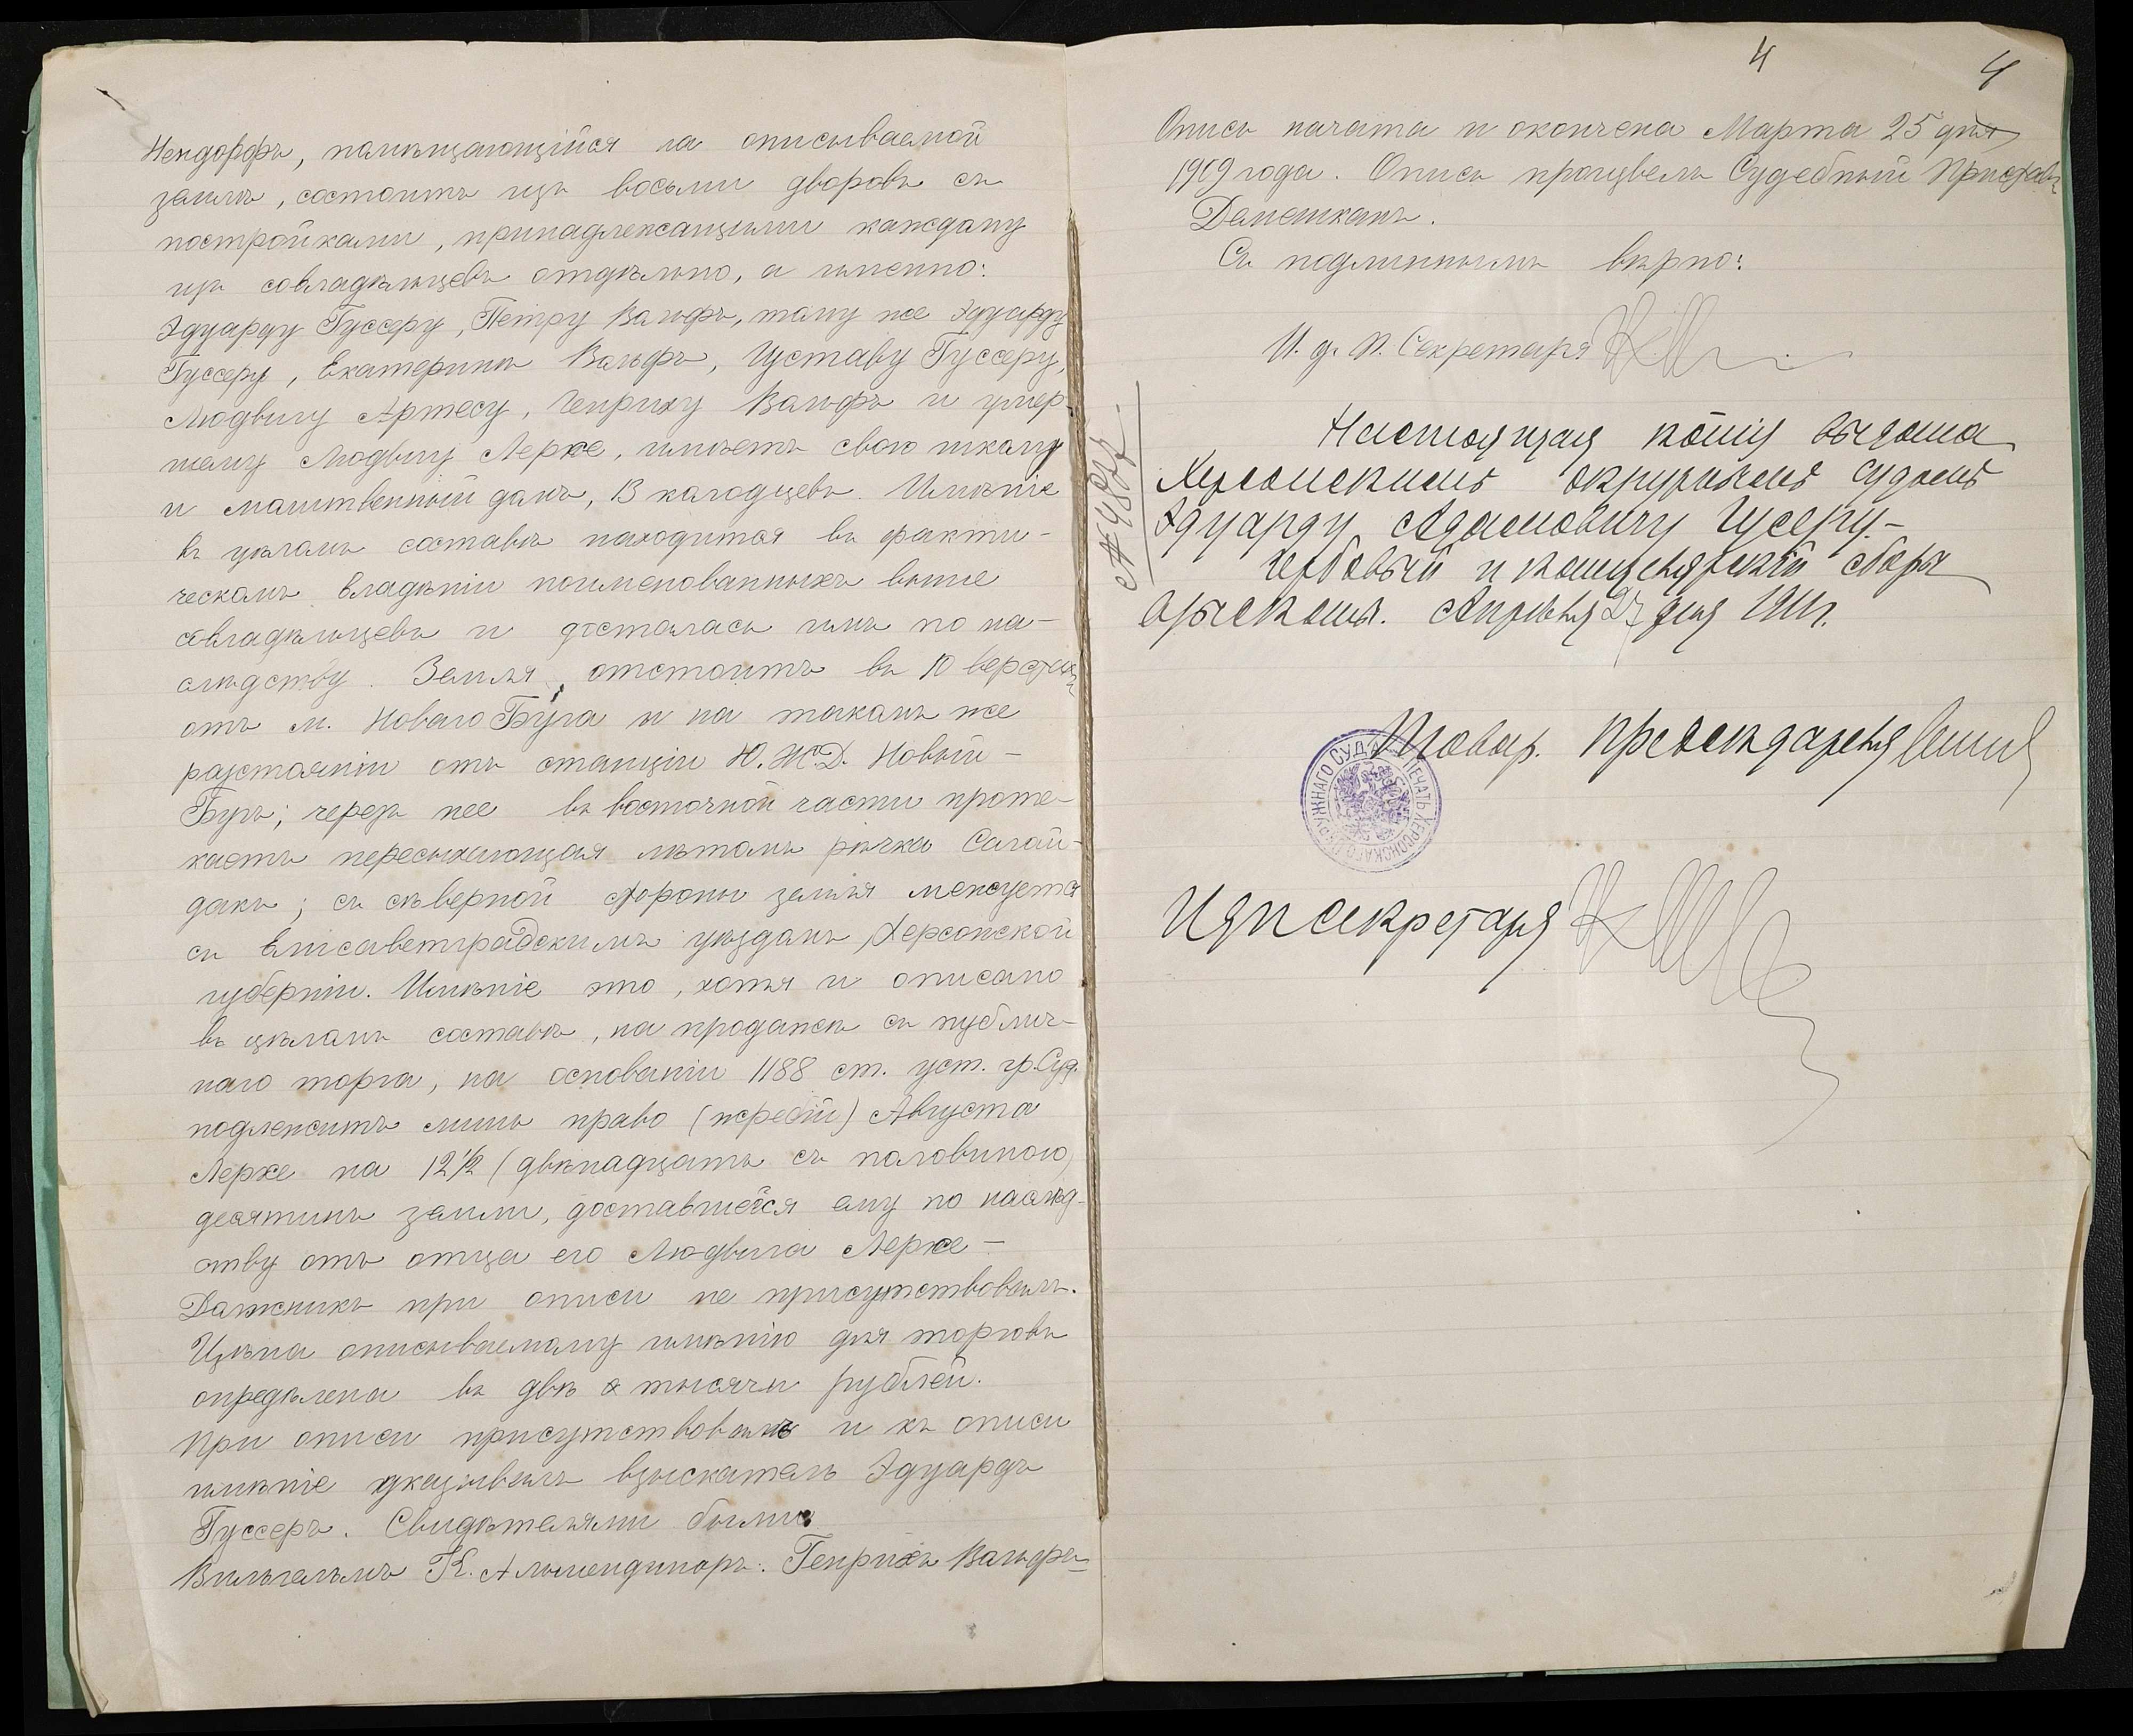 Нендорфъ, помѣщающійся на описываемой
землѣ, состоитъ изъ восьми дворовъ съ
постройками, принадлежащими каждому
изъ совладѣльцевъ отдѣльно, а именно:
Эдуарду Гуссеру, Петру Вольфъ, тому же Эдуарду
Гуссеру, Екатеринѣ Вольфъ, Густаву Гуссеру,
Людвигу Артесу, Генриху Вольфъ и умер-
шему Людвигу Лерхе, имѣетъ свою школу
и молитвенный домъ, 13 колодцевъ. Имѣніе
въ цѣломъ составѣ находится въ факти-
ческомъ владѣніи поименованныхъ выше
совладѣльцевъ и досталась имъ по на-
слѣдству. Земля отстоитъ въ 10 верстахъ
отъ м. Новаго Буга и на такомъ же
разстояніи отъ станціи Ю.Ж.Д. Новый-
Бугъ; черезъ нее въ восточной части проте-
каетъ пересыхающая лѣтомъ рѣчка Сагай-
дакъ; съ сѣверной стороны земля межуется
съ Елисаветградскимъ уѣздомъ, Херсонской
губерніи. Имѣніе это, хотя и описано
въ цѣломъ составѣ, но продажѣ съ публич-
наго торга, на основаніи 1188 ст. уст. гр. Суд.
подлежитъ лишь право (жребій) Августа
Лерхе на 12 1/2 (двѣнадцать съ половиною)
десятинъ земли, доставшейся ему по наслѣд-
ству отъ отца его Людвига Лерхе -
Должникъ при описи не присутствовалъ.
Цѣна описываемому имѣнію для торговъ
опредѣлена въ двѣ тысячи рублей.
При описи присутствовалъ и къ описи
имѣніе указывалъ взыскатель Эдуардъ
Гуссеръ. Свидѣтелями были
Вильгельмъ К. Генрихъ Вольфъ
4
4
Опись начата и окончена Марта 25 дня
1909 года. Опись произвелъ Судебный Приставъ
Съ подлиннымъ вѣрно:
И. д. П. Секретаря
№ 4802
Настоящая копія выдана
Херсонскимъ окружнымъ судомъ
Эдуарду Адамовичу Гусеру.-
Гербовый и канцелярскій сборъ
взысканы. Апрѣля 27 дня 1911г.
Товар. Предсѣдателя
ПЕЧАТЬ ХЕРСОНСКАГО ОКРУЖНАГО СУДА
И д п секретаря